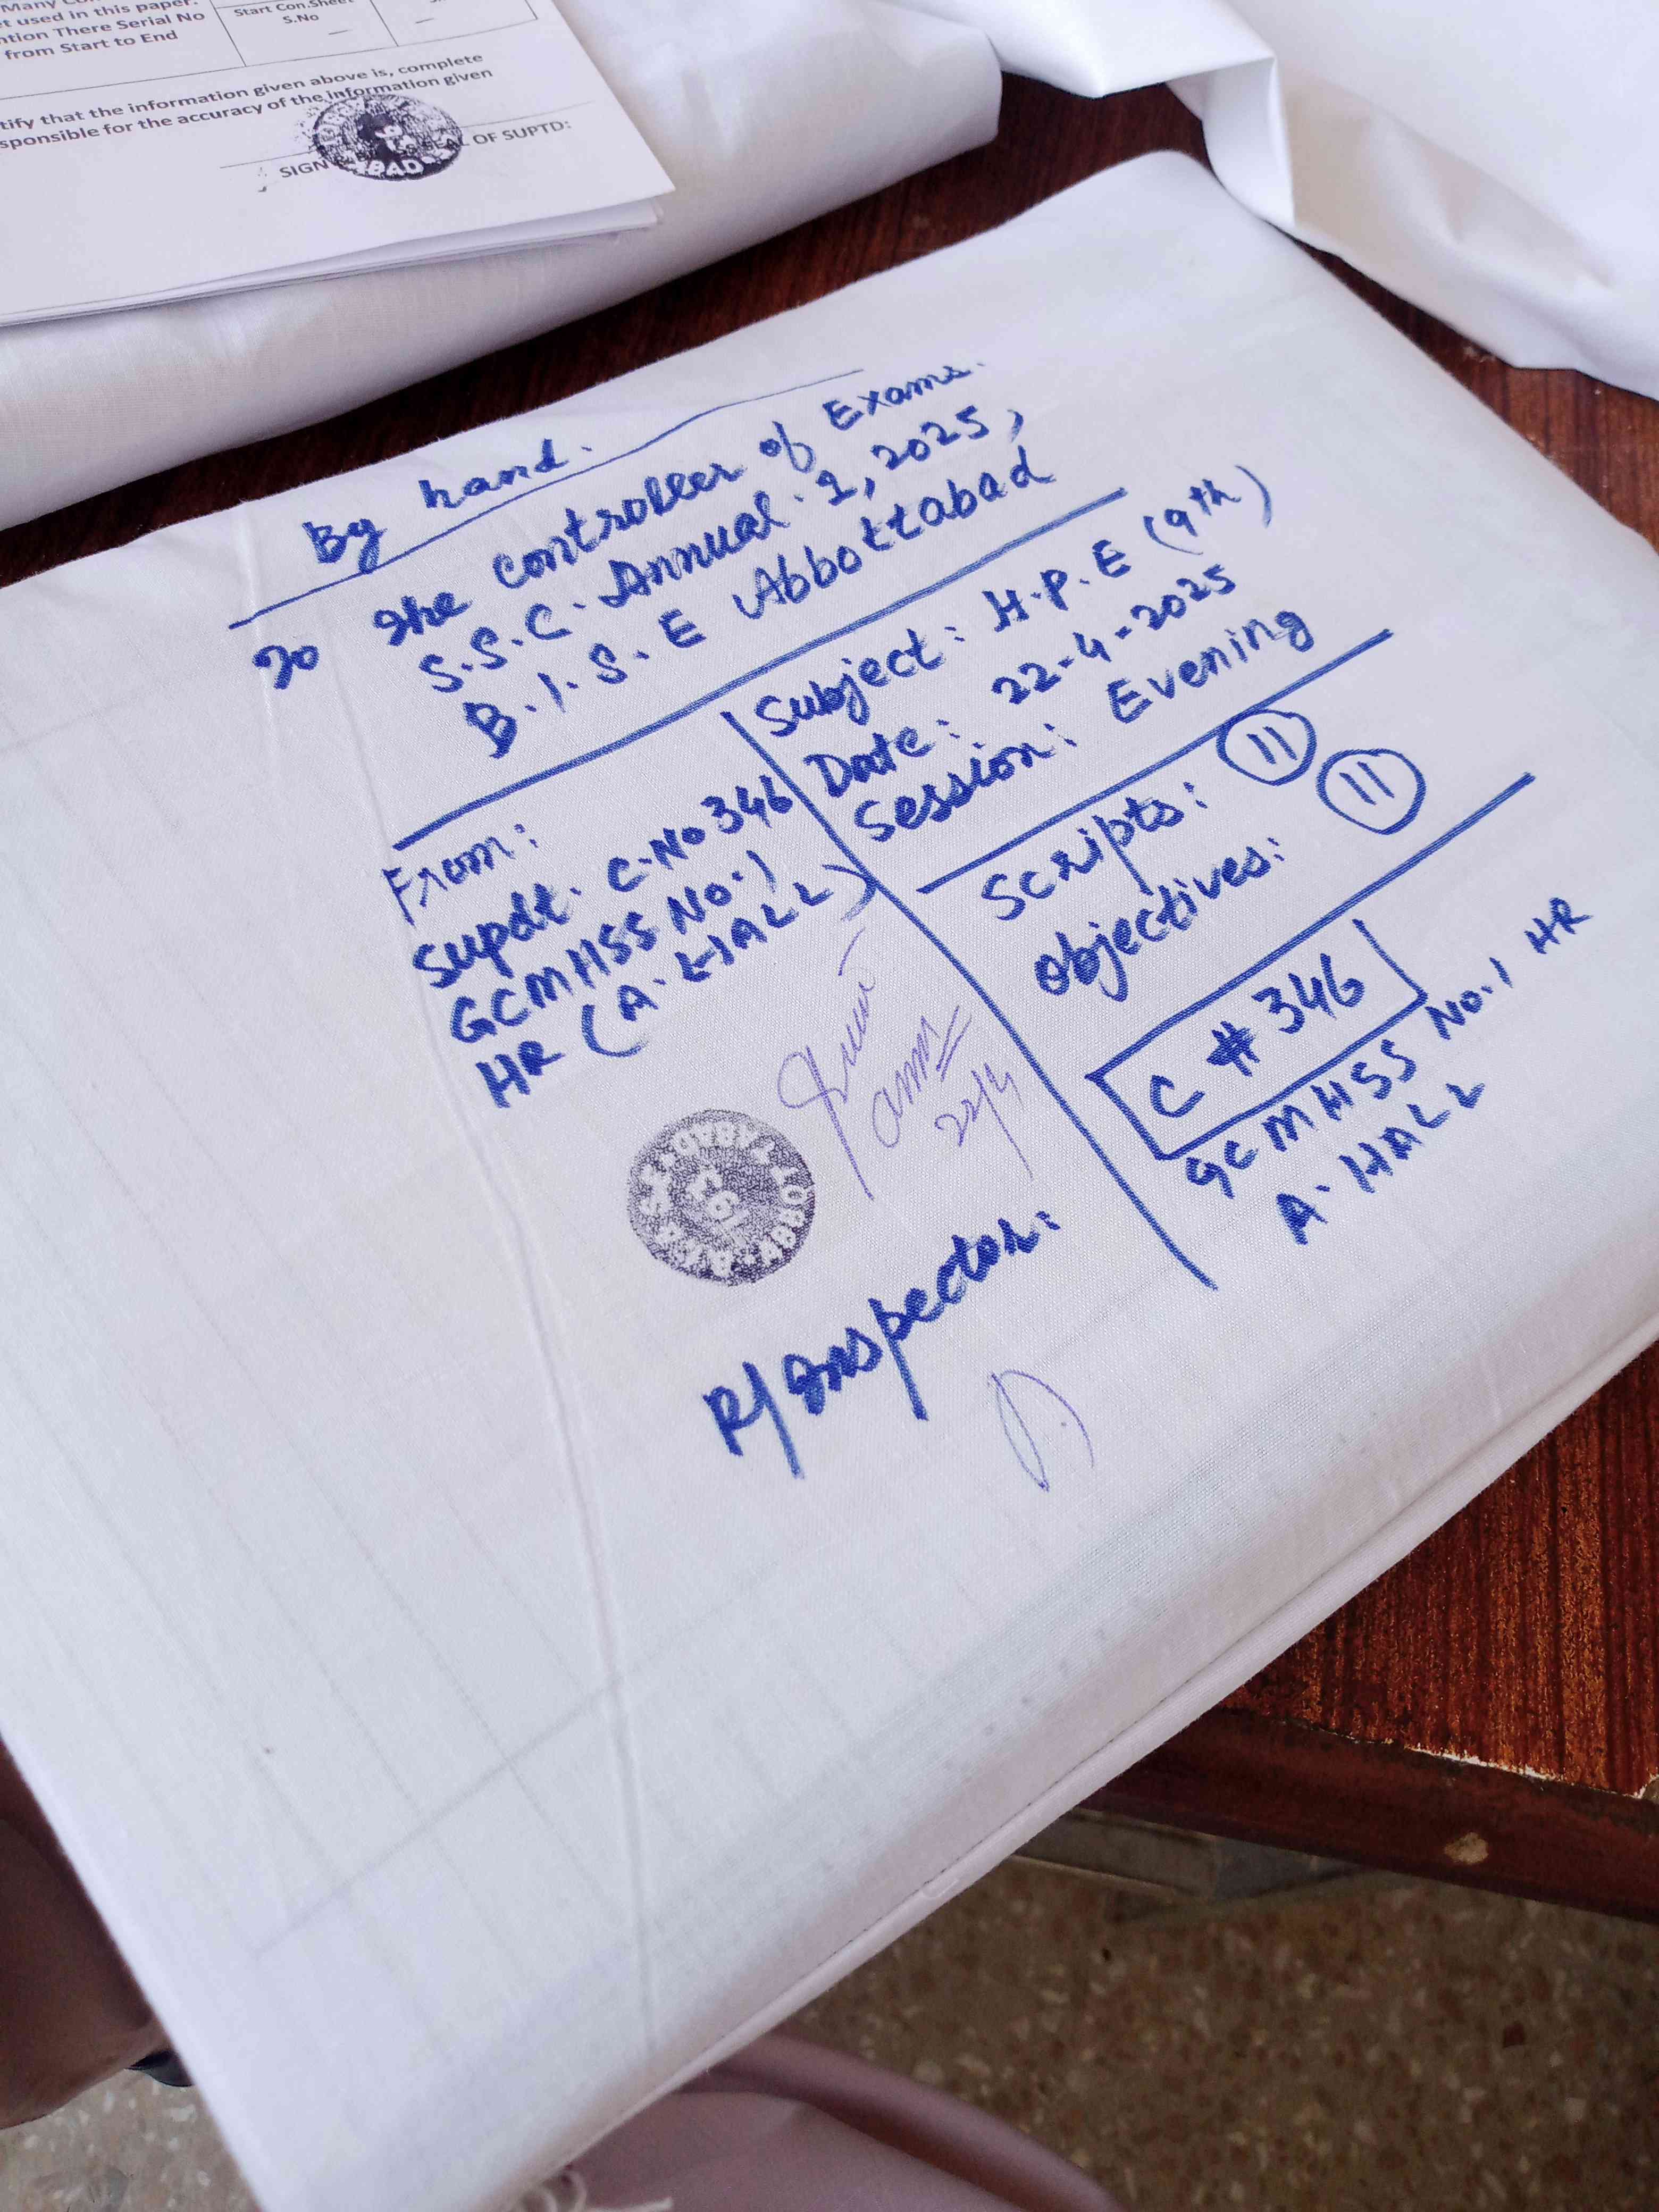 Many Con
et used in this paper.
ntion There Serial No
from Start to End
Start Con.Sheet
S.No
tify that the information given above is, complete
sponsible for the accuracy of the information given
SIGN SEAL OF SUPTD:
By hand.
To The Controller of Exams.
S.S.C. Annual. 1, 2025,
B.I.S.E Abbottabad
From:
Supdt. C.No 346
GCMHSS No.1
HR (A.HALL)
22/4
R/Inspector:
Subject: H.P.E (9th)
Date: 22-4-2025
Session: Evening
Scripts: 11
Objectives: 11
C # 346
GCMHSS No.1 HR
A.HALL